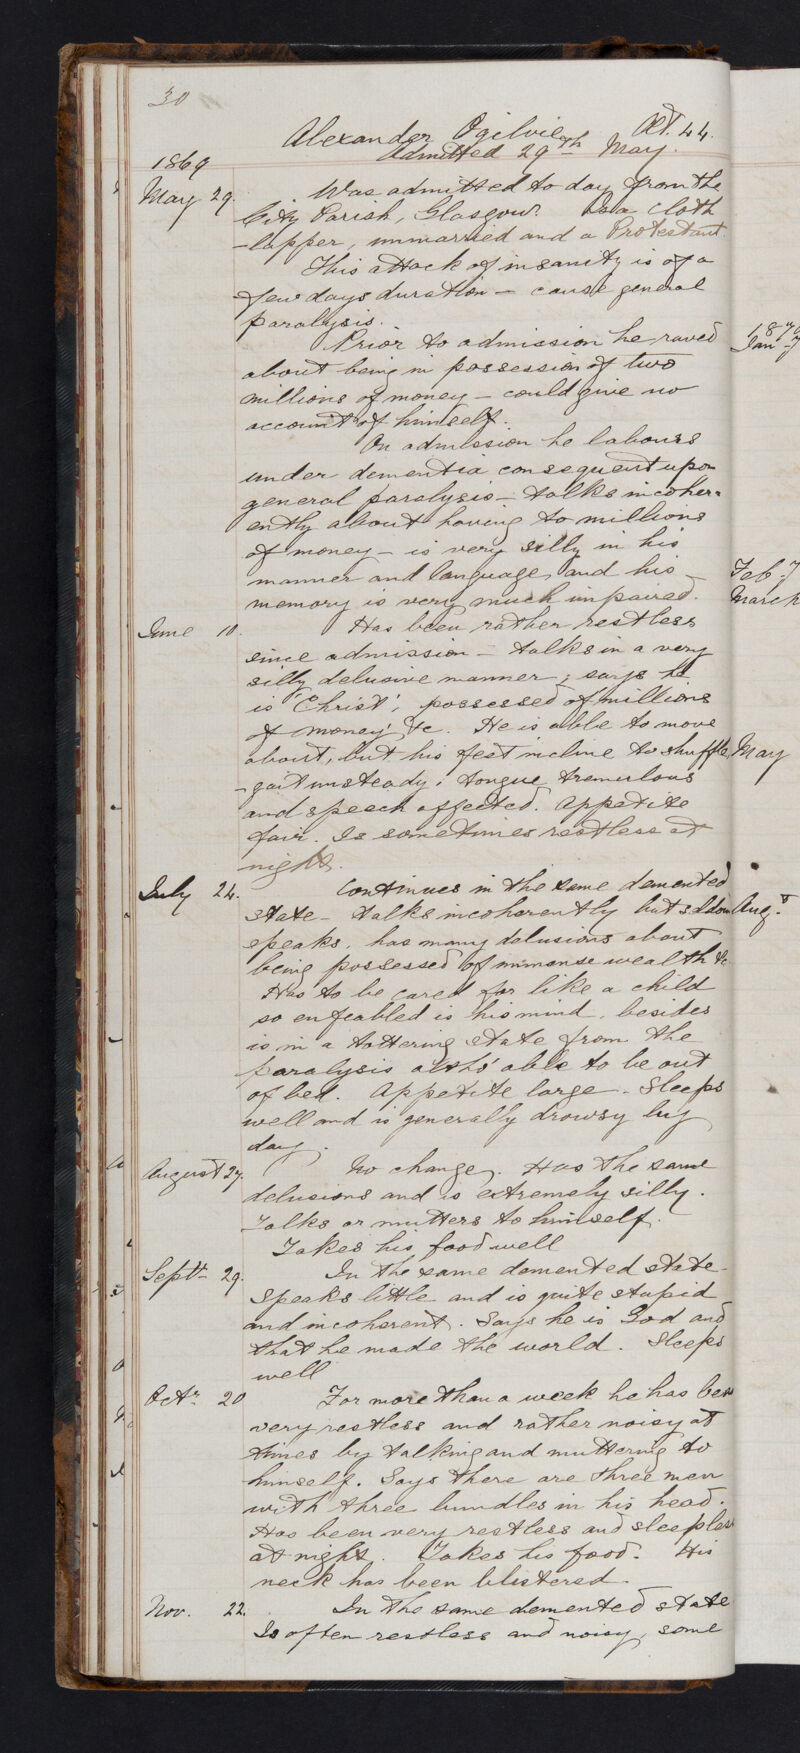 30
Alexander Ogilvie Æt. 44.
Admitted 29th May.
1869
May 29. Was admitted to day from the
City Parish, Glasgow. Is a cloth
-lapper, unmarried and a Protestant.
This attack of insanity is of a
few days duration – cause general
paralysis.
Prior to admission he raved
about being in possession of two
millions of money – could give no
account of himself.
On admission he labours
under dementia consequent upon
general paralysis – talks incoher-
ently about having to millions
of money – is very silly in his
manner and language, and his
memory is very much impaired.
June 10. Has been rather restless
since admission – talks in a very
silly delusive manner; says he
is 'Christ', possessed of millions
of money &c. He is able to move
about, but his feet incline to shuffle
-gait unsteady; tongue tremulous
and speech affected. Appetite
fair. Is sometimes restless at
night.
July 24. Continues in the same demented
state – talks incoherently but seldom
speaks, has many delusions about
being possessed of immense wealth &c
Has to be cared for like a child
so enfeabled is his mind, besides
is in a tottering state from the
paralysis altho' able to be out
of bed. Appetite large. Sleeps
well and is generally drowsy by
day.
August 27. No change. Has the same
delusions and is extremely silly.
Talks or mutters to himself.
Takes his food well
Septr 29. In the same demented state –
speaks little and is quite stupid
and incoherent. Says he is God and
that he made the world. Sleeps
well
Octr 20 For more than a week he has been
very restless and rather noisy at
times by talking and muttering to
himself. Says there are three men
with three bundles in his head.
Has been very restless and sleepless
at night. Takes his food. His
neck has been blistered.
Nov. 22. In the same demented state
Is often restless and noisy, some
1870
Jany
Feby
March
May
Augt